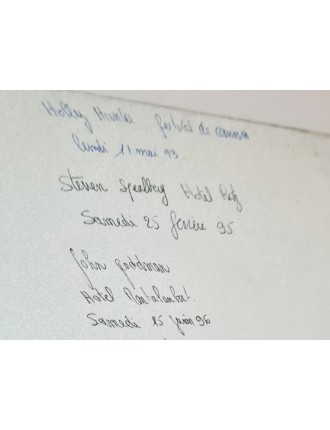 Holly Hunter festival de cannes
lundi 17 mai 93.
Steven Spielberg Hotel Ritz
Samedi 25 février 95
John goodman
Hôtel Montalembert.
Samedi 15 juin 96